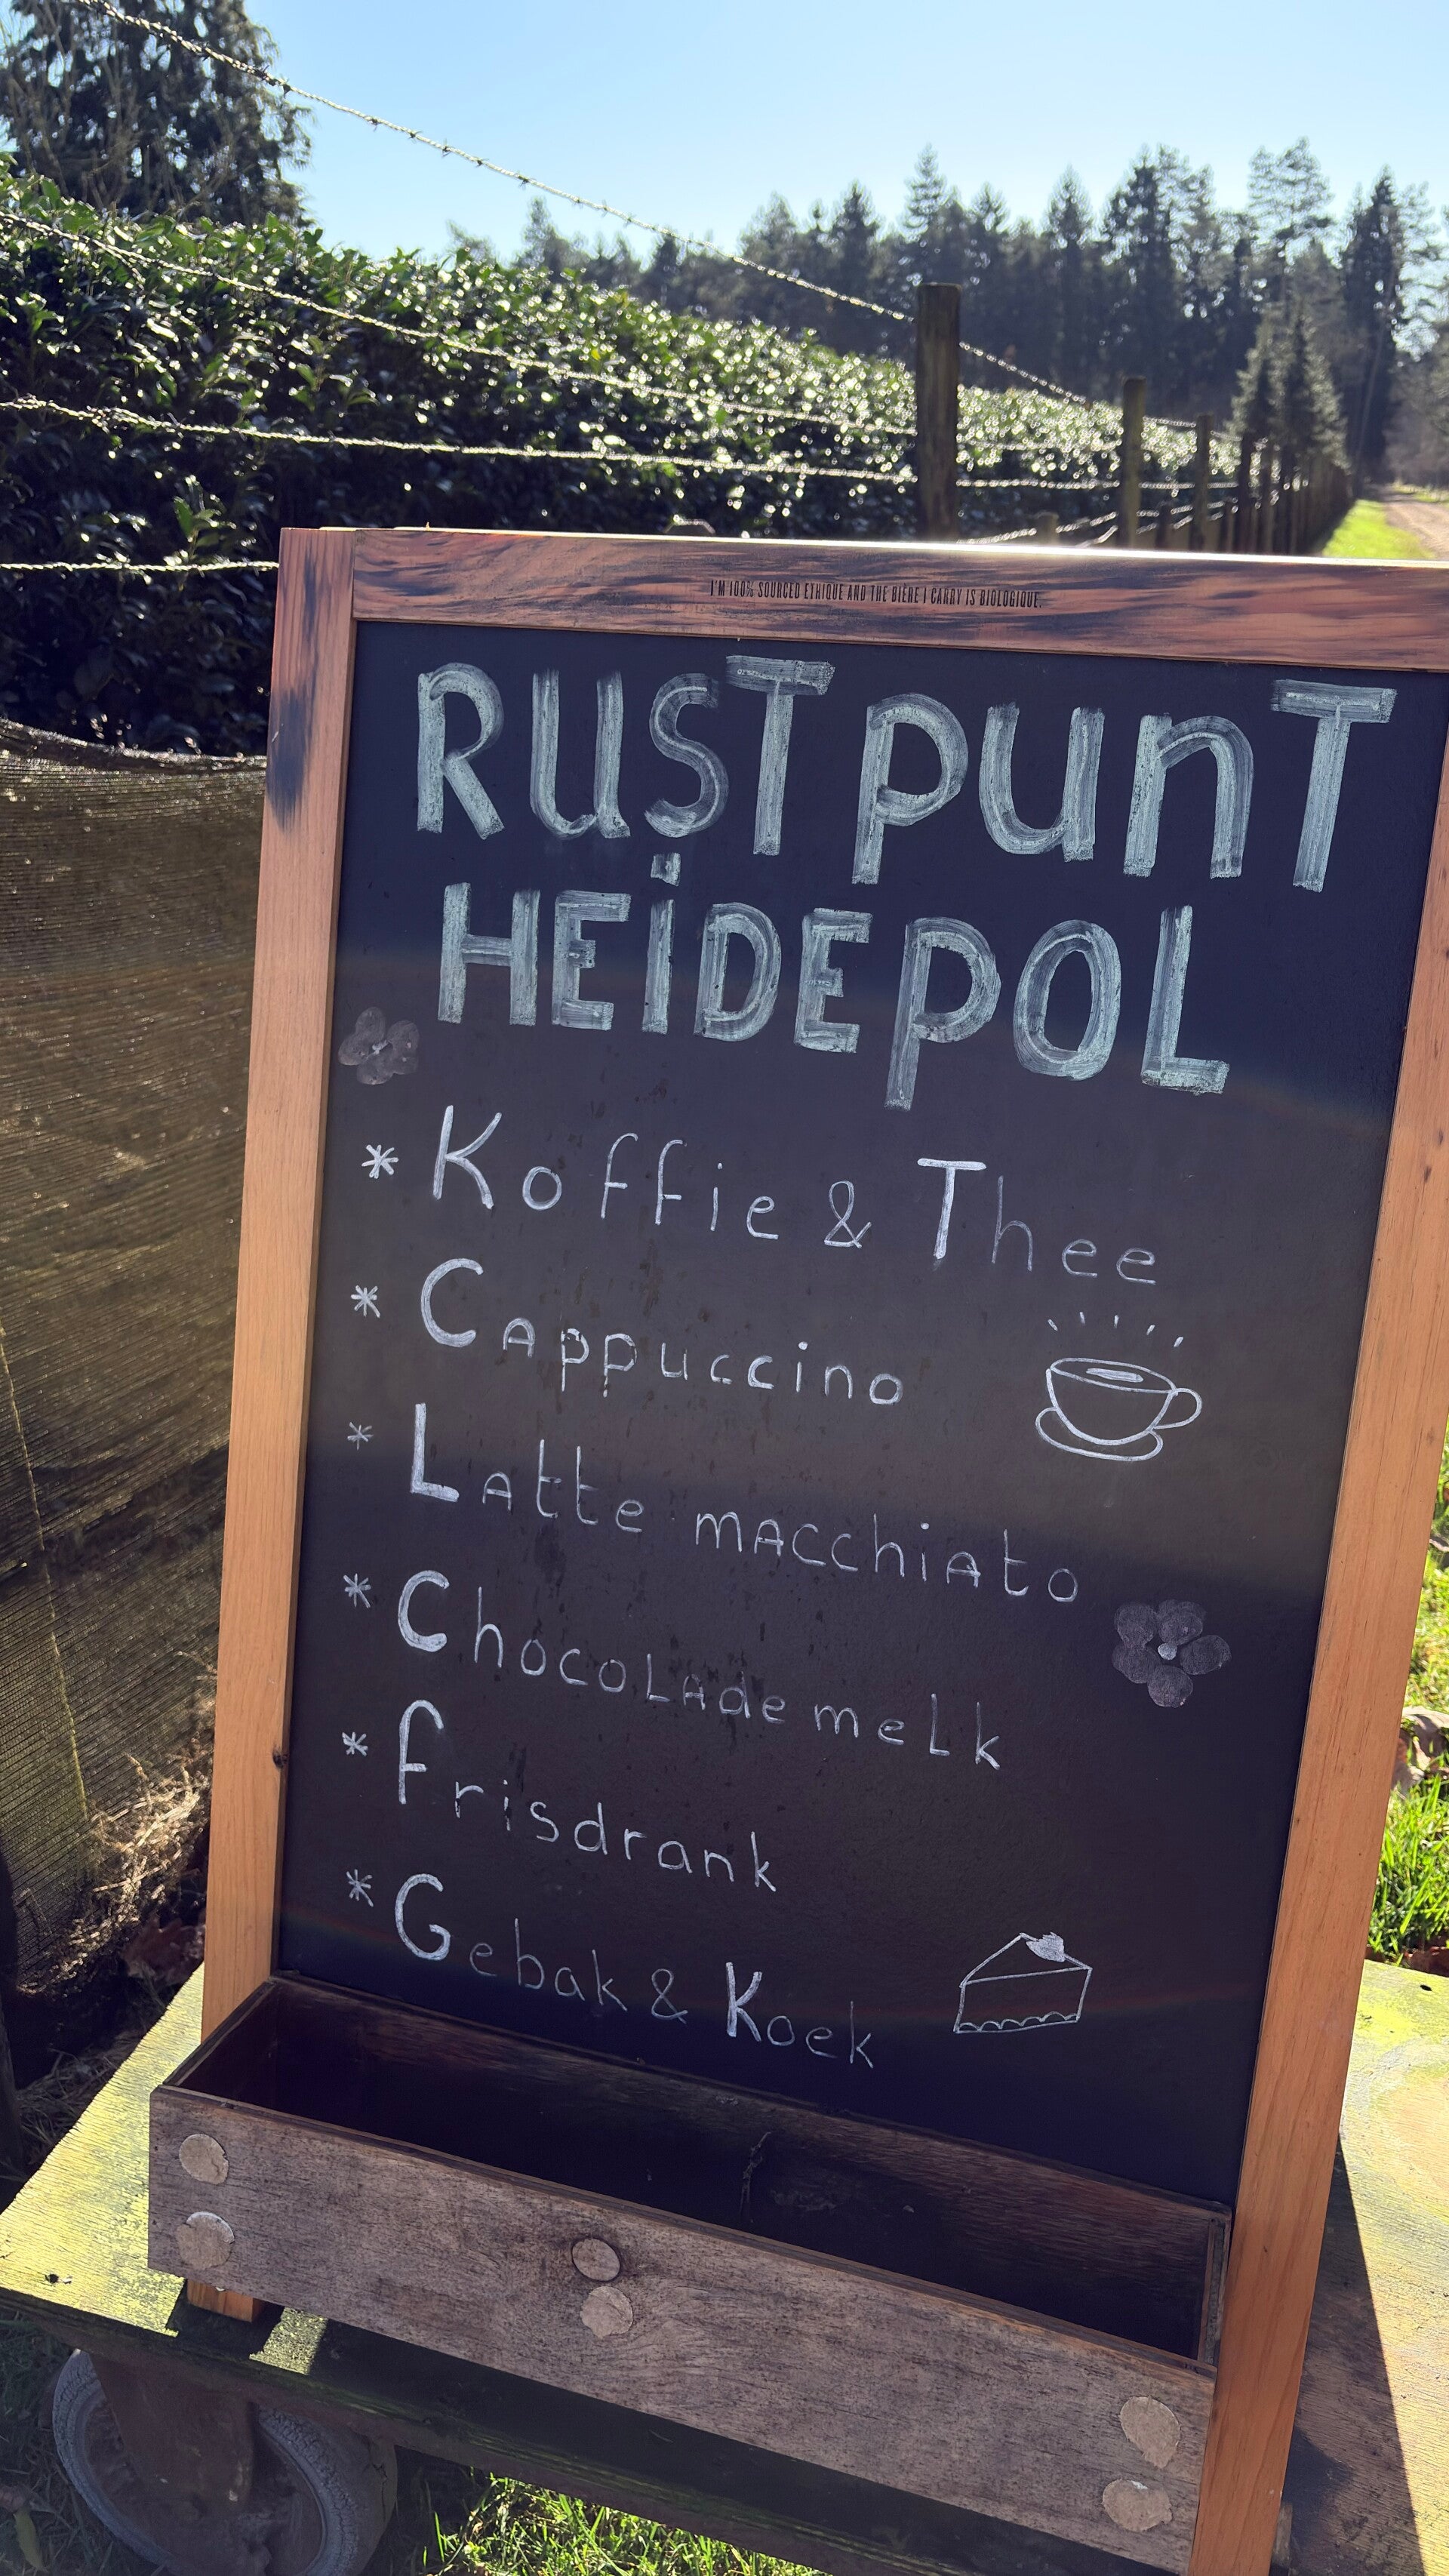 I'M 100% SOURCED ETHIQUE AND THE BIÈRE I CARRY IS BIOLOGIQUE.
RUSTPUNT
HEIDEPOL
* Koffie & Thee
* Cappuccino
* Latte macchiato
* Chocolade melk
* Frisdrank
* Gebak & Koek